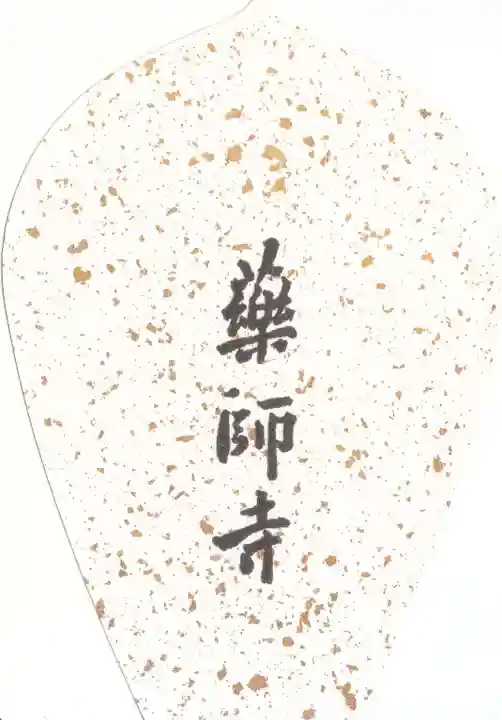 藥師寺